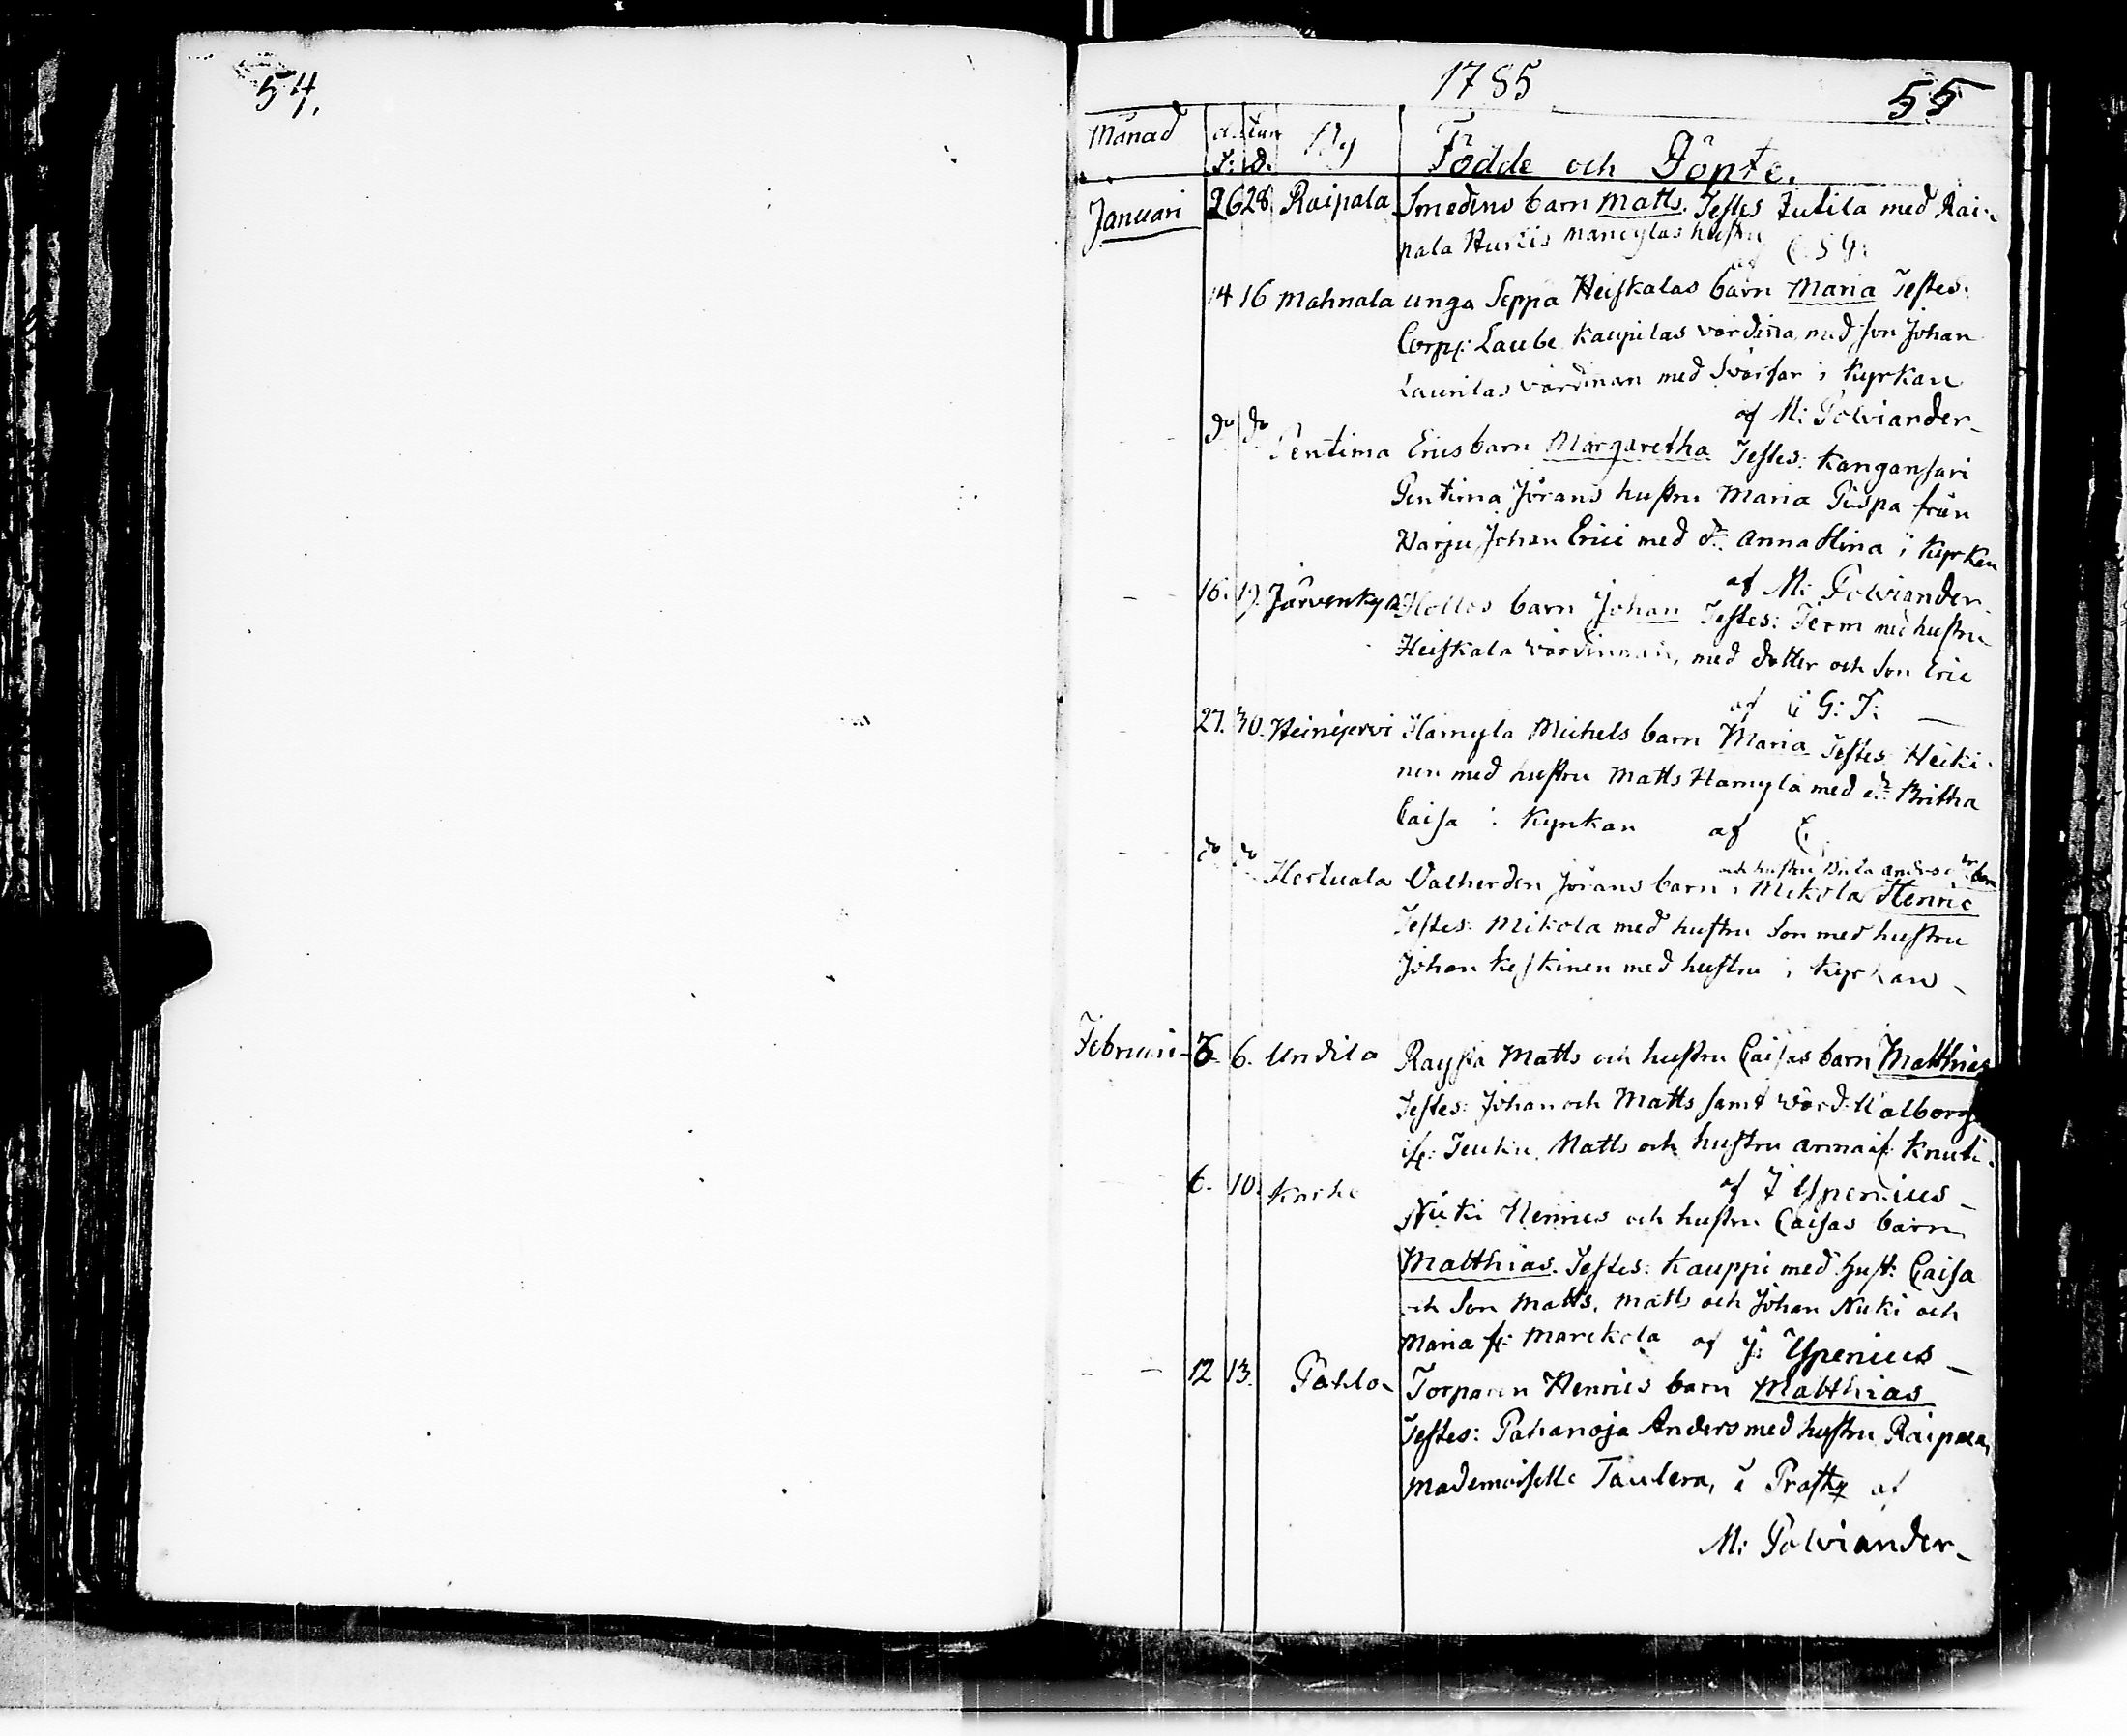 54.
1785
55
Månad datum By Födde och Döpte.
F: D.
Januari 26 28 Raipala Smedens barn Matts. Testes Jutila med Rai-
pala Hurtis hustru
af C. S G:
14 16 Mahnala unga Seppä Heiskalas barn Maria Testes:
Corp: Laube Kaupilas värdina med son Johan
Laurilas värdinan med Svärfar i Kyrkan
af M: Polviander
do do Pentima Erics barn Margaretha Testes: Kangansari
Pentima Jörans hustru Maria Pispa från
Harju Johan Erici med dr Anna Stina i Kyrkan
af M: Polviander
16. 19. Järvenkylä Hollos barn Johan Testes: Term med hustru
Heiskala värdinnan, med dotter och Son Eric
af G: T:
27. 30. Heinijervi Hamyla Michels barn Maria Testes: Heiki-
nen med hustru Matts Hamyla med dr Britha
Caisa i Kyrkan af C
och hustru barn
do do Hertuala Jörans barn i Mikola Henric
Testes: Mikola med hustru Son med hustru
Johan Keskinen med hustru i Kyrkan
Februari 6. 6. Undila Matts och hustru Caisas barn Matthias
Testes: Johan och Matts samt värd: Valborg
Matts och hustru Anna Knuti
af J Ypenius
6. 10. Niuki Henrics och hustru Caisas barn
Matthias. Testes: Kauppi med Hust: Caisa
och Son Matts, Matts och Johan Niuki och
Maria Marckola af J: Ypenius
12 13. Pahlo Torparen Henrics barn Matthias
Testes: Pahanoja Anders med hustru Raipala
Mademoiselle Taulera, i Prästg af
M: Polviander